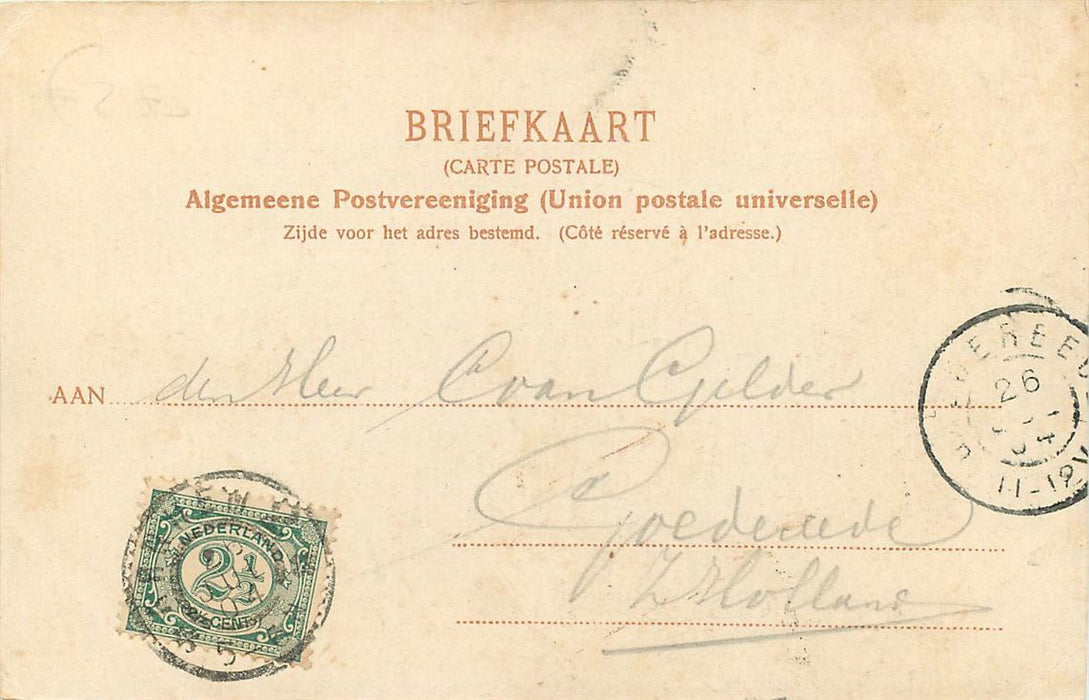 BRIEFKAART
(CARTE POSTALE)
Algemeene Postvereeniging (Union postale universelle)
Zijde voor het adres bestemd. (Côté réservé à l'adresse.)
AAN den Heer C van Gelder
Goedereede
Z Holland
NEDERLAND
2½
CENT
26
11-12V